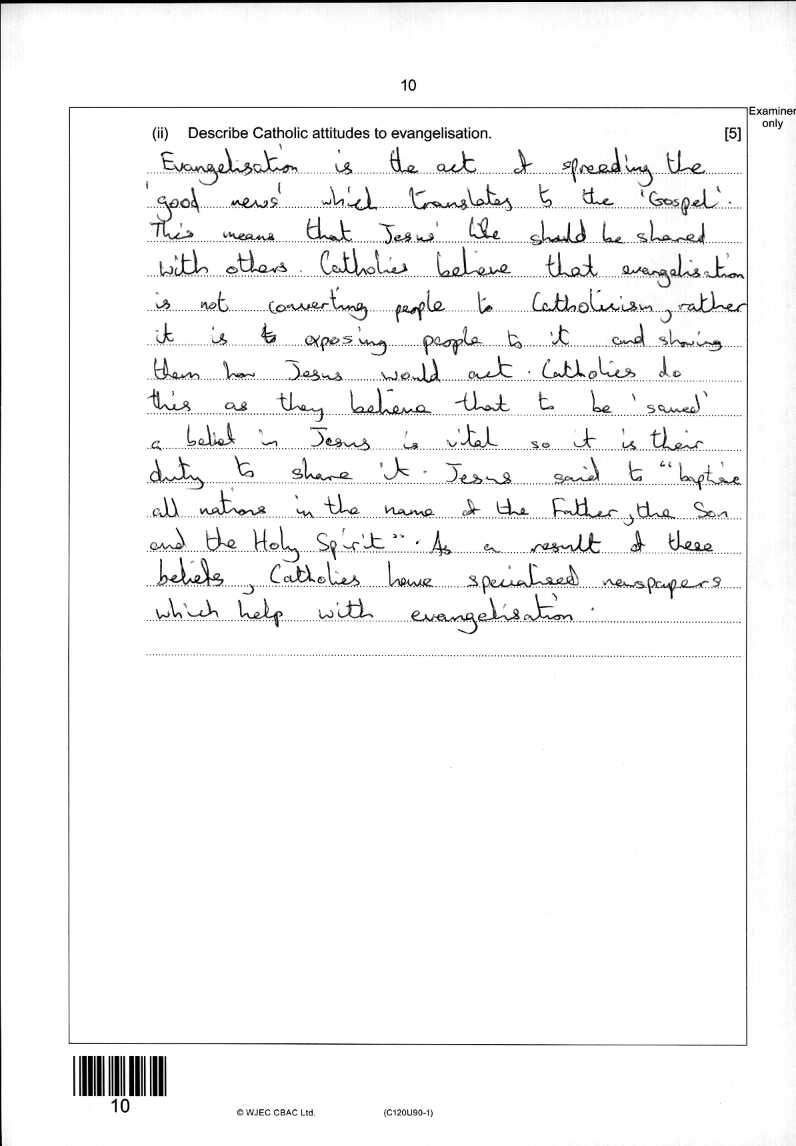 10
Examiner
only
(ii) Describe Catholic attitudes to evangelisation. [5]
Evangelisation is the act of spreading the
'good news' which translates to the 'Gospel'.
This means that Jesus' life should be shared
with others. Catholics believe that evangelisation
is not converting people to Catholicism, rather
it is to exposing people to it and showing
them how Jesus would act. Catholics do
this as they believe that to be 'saved'
a belief in Jesus is vital so it is their
duty to share it. Jesus said to "baptise
all nations in the name of the Father, the Son
and the Holy Spirit". As a result of these
beliefs, Catholics have specialised newspapers
which help with evangelisation.
10
© WJEC CBAC Ltd. (C120U90-1)